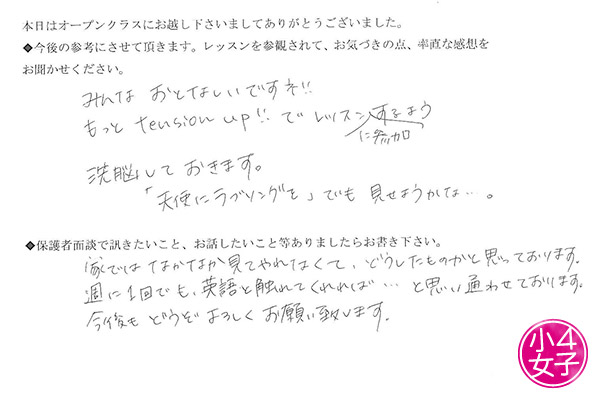 本日はオープンクラスにお越し下さいましてありがとうございました。
◆今後の参考にさせて頂きます。レッスンを参観されて、お気づきの点、率直な感想を
お聞かせください。
みんな おとなしいですネ!!
もっと tension up!! で レッスン するよう
に参加
洗脳しておきます。
「天使にラブソングを」でも 見せようかな…。
◆保護者面談で訊きたいこと、お話したいこと等ありましたらお書き下さい。
家では なかなか見てやれなくて、どうしたものかと思っております。
週に1回でも、英語と触れてくれれば… と思い通わせております。
今後も どうぞ よろしく お願い致します。
小4
女子